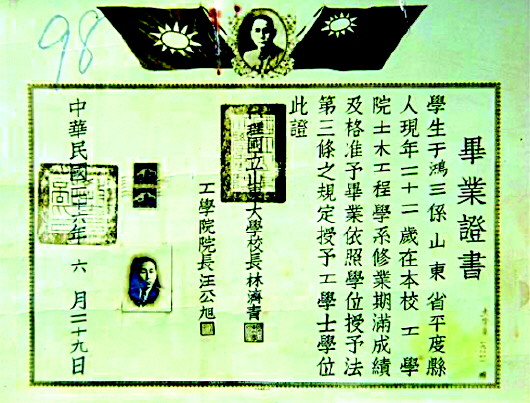 98
畢業證書
學生于鴻三係山東省平度縣
人現年二十二歲在本校工學
院土木工程學系修業期滿成績
及格准予畢業依照學位授予法
第三條之規定授予工學士學位
此證
代理國立山東大學校長林濟青
工學院院長汪公旭
中華民國二十六年六月二十九日